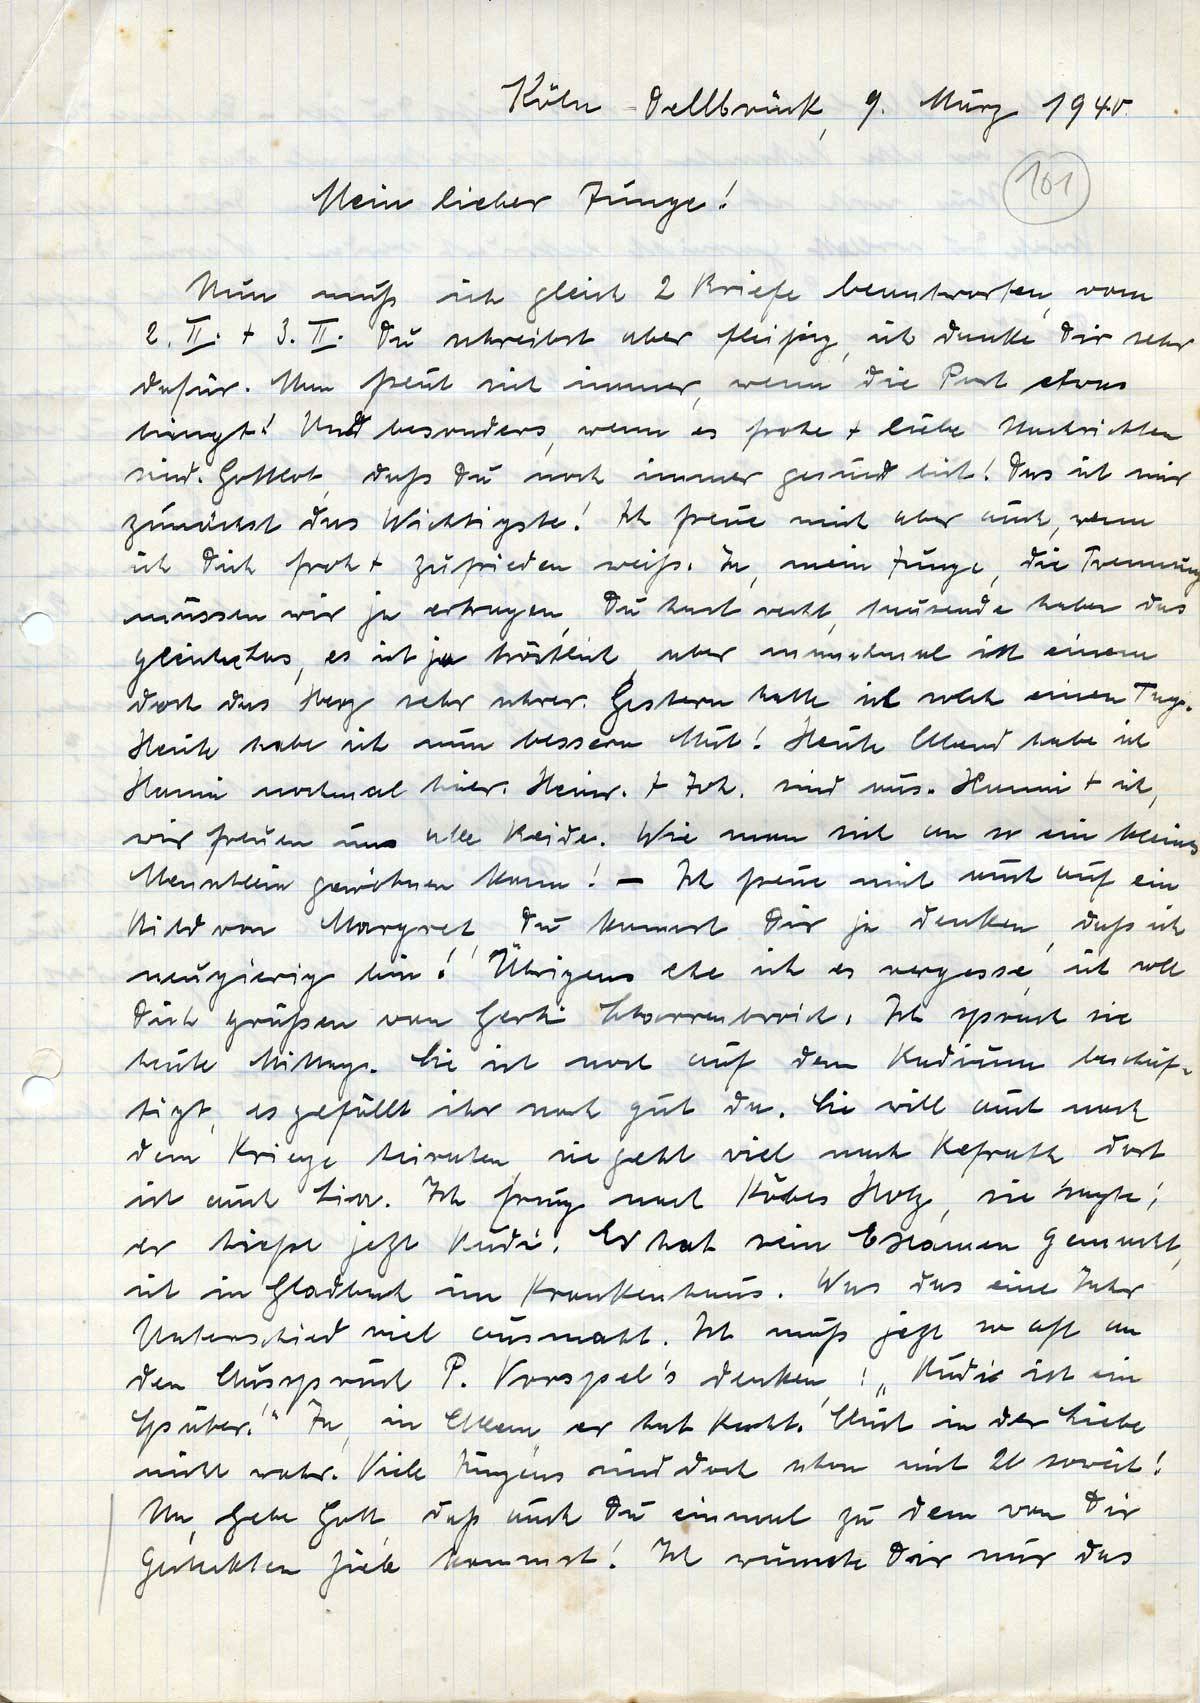 Köln-Dellbrück, 9. März 1940.
101
Mein lieber Junge!
Nun muß ich gleich 2 Briefe beantworten, vom
2. II. + 3. II. Du schreibst aber fleißig, ich danke Dir sehr
dafür. Man freut sich immer, wenn die Post etwas
bringt! Und besonders, wenn es frohe + liebe Nachrichten
sind. Gottlob, daß Du noch immer gesund bist! Das ist mir
zunächst das Wichtigste! Ich freue mich aber auch, wenn
ich Dich froh + zufrieden weiß. Ja, mein Junge, die Trennung
müssen wir ja ertragen, Du hast recht, tausende haben das
gleiche Los, es ist ja tröstlich, aber manchmal ist einem
doch das Herz sehr schwer. Gestern hatte ich solch einen Tag.
Heute habe ich nun bessern Mut! Heute Abend habe ich
Hanni nochmal hier. Heinr. + Joh. sind aus. Hanni + ich,
wir freuen uns alle Beide. Wie man sich an so ein kleines
Menschlein gewöhnen kann! – Ich freue mich auch auf ein
Bild von Margret, Du kannst Dir ja denken, daß ich
neugierig bin! Übrigens ehe ich es vergesse, ich soll
Dich grüßen von Gerti. Ich sprach sie
heute Mittag. Sie ist noch auf dem Büdium beschäf-
tigt, es gefällt ihr noch gut da. Sie will auch nach
dem Kriege heiraten, sie geht viel nach Refrath, dort
ist auch. Ich frug nach Köbes Holz, sie sagte,
er hieße jetzt Rudi. Er hat sein Examen gemacht,
ist in Gladbach im Krankenhaus. Was das eine Jahr
Unterschied viel ausmacht. Ich muß jetzt so oft an
den Ausspruch P. Vorspel's denken,: „Rudi ist ein
später!" Ja, in Allem, er hat Recht. Auch in der Liebe
nicht wahr. Viele Jungens sind doch schon mit 20 soweit!
Na, Gebe Gott, daß auch Du einmal zu dem von Dir
Gesteckten Ziele kommst! Ich wünsche Dir nur das